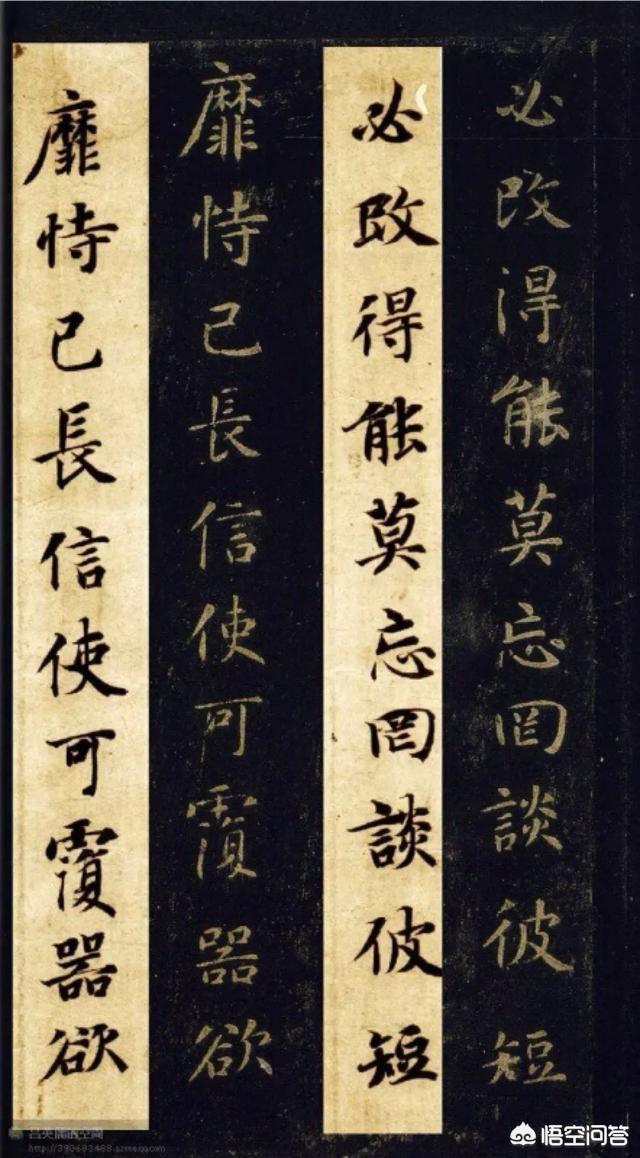 必改得能莫忘罔談彼短
必改得能莫忘罔談彼短
靡恃己長信使可覆器欲
靡恃己長信使可覆器欲
悟空问答